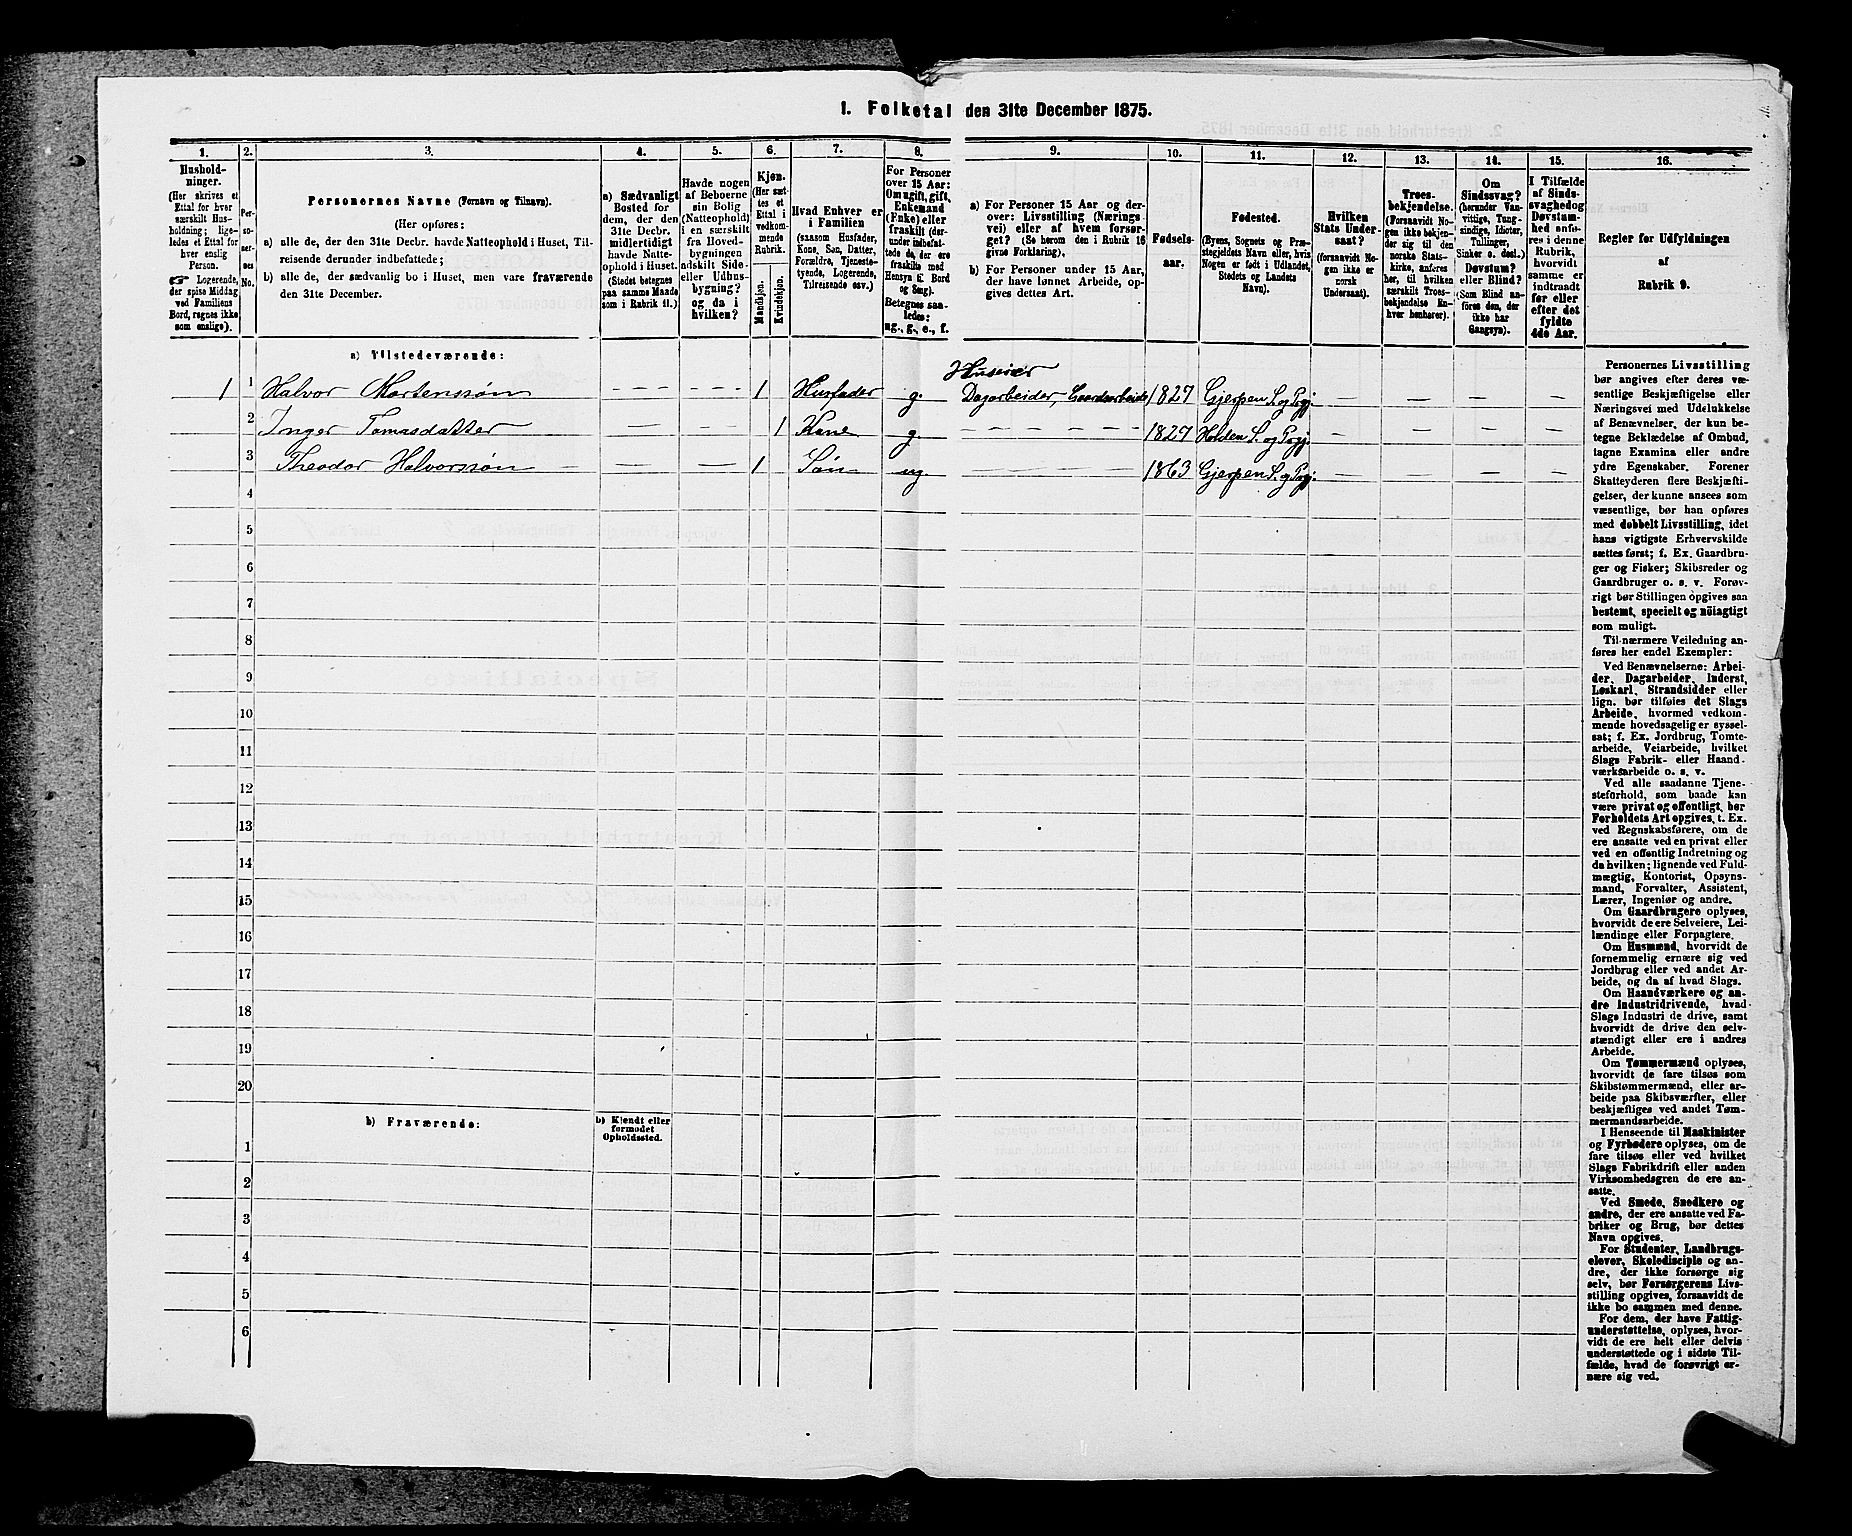 1. Folketal den 31te December 1875.
1. 2. 3. 4. 5. 6. 7. 8. 9. 10. 11. 12. 13. 14. 15. 16.
Hushold-
ninger.
(Her skrives et
Ettal for hver
særskilt Hus-
holdning; lige-
ledes et Ettal for
hver enslig
Person.
Logerende,
der spise Middag
ved Familiens
Bord, regnes ikke
som enslige).
Per-
so-
ner-
nes
No.
Personernes Navne (Fornavn og Tilnavn).
(Her opføres:
a) alle de, der den 31te Decbr. havde Natteophold i Huset, Til-
reisende derunder indbefattede;
b) alle de, der sædvanlig bo i Huset, men vare fraværende
den 31te December.
a) Sædvanligt
Bosted for
dem, der den
31te Decbr.
midlertidigt
havde Natte-
ophold i Huset.
(Stedet betegnes
paa samme Maade
som i Rubrik 11.)
Havde nogen
af Beboerne
sin Bolig
(Natteophold)
i en særskilt
fra Hoved-
bygningen
adskilt Side-
eller Udhus-
bygning?
og da i
hvilken?
Kjøn.
(Her sæt-
tes et
Ettal i
vedkom-
mende
Rubrik.
Mandkjøn.
Kvindekjøn.
Hvad Enhver er
i Familien
(saasom Husfader,
Kone, Søn, Datter,
Forældre, Tjeneste-
tyende, Logerende,
Tilreisende osv.)
For Personer
over 15 Aar:
Om ugift, gift,
Enkemand
(Enke) eller
fraskilt (der-
under indbefat-
tede de, der ere
fraskilte med
Hensyn til Bord
og Seng).
Betegnes saa-
ledes:
ug., g., e., f.
a) For Personer 15 Aar og der-
over: Livsstilling (Nærings-
vei) eller af hvem forsør-
get? (Se herom den i Rubrik 16
givne Forklaring).
b) For Personer under 15 Aar,
der have lønnet Arbeide, op-
gives dettes Art.
Fødsels-
aar.
Fødested.
(Byens, Sognets og Præ-
stegjeldets Navn eller, hvis
Nogen er født i Udlandet,
Stedets og Landets
Navn).
Hvilken
Stats Under-
saat?
(forsaavidt No-
gen ikke er
norsk
Undersaat).
Troes-
bekjendelse.
(Forsaavidt No-
gen ikke bekjen-
der sig til den
norske Stats-
kirke, anføres
her, til hvilken
særskilt Troes-
bekjendelse En-
hver henhører).
Om
Sindssvag?
(herunder Van-
vittige, Tung-
sindige, Idioter,
Tullinger,
Sinker o. desl.)
Døvstum?
eller Blind?
(Som Blind an-
føres den, der
ikke har
Gangsyn).
I Tilfælde
af Sinds-
svaghed og
Døvstum-
hed anfø-
res i denne
Rubrik,
hvorvidt
samme er
indtraadt
før eller
efter det
fyldte
4de Aar.
Regler for Udfyldningen
af
Rubrik 9.
a) Tilstedeværende:
Huseier
1 1 Halvor Mortenssøn – – – – 1 Husfader g. Dagarbeider, Gaardsarbeide 1827 Gjerpen S. og Prgj. – – – –
2 Inger Tomasdatter – – 1 Kone g – – – – – 1827 Holden S. og Prgj. – – – –
3 Theodor Halvorssøn – – – 1 Søn ug. – – 1863 Gjerpen S. og Prgj. – – – –
4
5
6
7
8
9
10
11
12
13
14
15
16
17
18
19
20
b) Fraværende:
b) Kjendt eller
formodet
Opholdssted.
1
2
3
4
5
6
Personernes Livsstilling
bør angives efter deres væ-
sentlige Beskjæftigelse eller
Næringsvei med Udelukkelse
af Benævnelser, der kun be-
tegne Beklædelse af Ombud,
tagne Examina eller andre
ydre Egenskaber. Forener
Skatteyderen flere Beskjæfti-
gelser, der kunne ansees som
væsentlige, bør han opføres
med dobbelt Livsstilling, idet
hans vigtigste Erhvervskilde
sættes først; f. Ex. Gaardbru-
ger og Fisker; Skibsreder og
Gaardbruger o. s. v. Forøv-
rigt bør Stillingen opgives saa
bestemt, specielt og nöiagtigt
som muligt.
Til nærmere Veiledning an-
føres her endel Exempler:
Ved Benævnelserne: Arbei-
der, Dagarbeider, Inderst,
Løskarl, Strandsidder eller
lign. bør tilføies det Slags
Arbeide, hvormed vedkom-
mende hovedsagelig er syssel-
sat; f. Ex. Jordbrug, Tomte-
arbeide, Veiarbeide, hvilket
Slags Fabrik- eller Haand-
værksarbeide o. s. v.
Ved alle saadanne Tjene-
steforhold, som baade kan
være privat og offentligt, bør
Forholdets Art opgives, t. Ex.
ved Regnskabsførere, om de
ere ansatte ved en privat eller
ved en offentlig Indretning og
da hvilken; lignende ved Fuld-
mægtig, Kontorist, Opsyns-
mand, Forvalter, Assistent,
Lærer, Ingeniør og andre.
Om Gaardbrugere oplyses,
hvorvidt de ere Selveiere, Lei-
lændinge eller Forpagtere.
Om Husmænd, hvorvidt de
fornemmelig ernære sig ved
Jordbrug eller ved andet Ar-
beide, og da af hvad Slags.
Om Haandværkere og an-
dre Industridrivende, hvad
Slags Industri de drive, samt
hvorvidt de drive den selv-
stændigt eller ere i andres
Arbeide.
Om Tømmermænd oplyses,
hvorvidt de fare tilsøs som
Skibstømmermænd, eller ar-
beide paa Skibsværfter, eller
beskjæftiges ved andet Tøm-
mermandsarbeide.
I Henseende til Maskinister
og Fyrbødere oplyses, om de
fare tilsøs eller ved hvilket
Slags Fabrikdrift eller anden
Virksomhedsgren de ere an-
satte.
Ved Smede, Snedkere og
andre, der ere ansatte ved Fa-
briker og Brug, bør dettes
Navn opgives.
For Studenter, Landbrugs-
elever, Skoledisciple og an-
dre, der ikke forsørge sig
selv, bør Forsørgerens Livs-
stilling opgives, forsaavidt de
ikke bo sammen med denne.
For dem, der have Fattig-
understøttelse, oplyses, hvor-
vidt de ere helt eller delvis
understøttede og i sidste Til-
fælde, hvad de forøvrigt er-
nære sig ved.